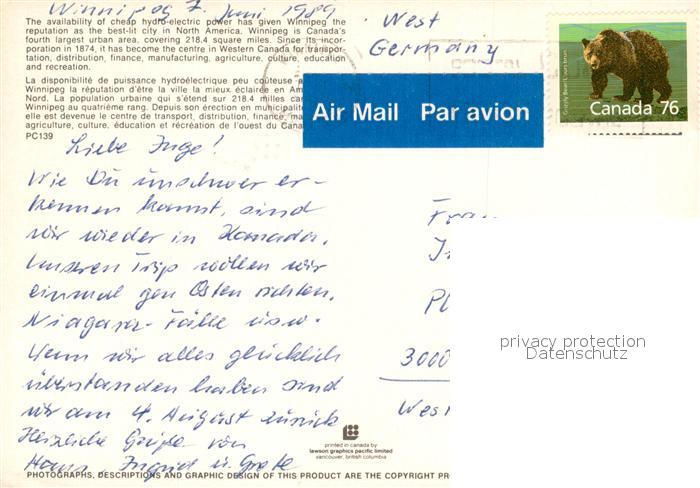 Winnipeg 7. Juni 1989
The availability of cheap hydro-electric power has given Winnipeg the
reputation as the best-lit city in North America. Winnipeg is Canada's
fourth largest urban area, covering 218.4 square miles. Since its incor-
poration in 1874, it has become the centre in Western Canada for transpor-
tation, distribution, finance, manufacturing, agriculture, culture, education
and recreation.
La disponibilité de puissance hydroélectrique peu coûteuse a
Winnipeg la réputation d'être la ville la mieux éclairée en Am
Nord. La population urbaine qui s'étend sur 218.4 milles car
Winnipeg au quatrième rang. Depuis son érection en municipalité
elle est devenue le centre de transport, distribution, finance, ma
agriculture, culture, éducation et récréation de l'ouest du Cana
PC139
West
Germany
Grizzly Bear/L'ours brun
Canada 76
Air Mail Par avion
Liebe Inge!
Wie Du unschwer er-
kennen kannst, sind
wir wieder in Kanada.
Unseren Trip wollen wir
einmal gen Osten richten.
Niagara-Fälle usw.
Wenn wir alles glücklich
überstanden haben sind
wir am 4. August zurück
Herzliche Grüße von
Hans, Ingrid u. Grete
Frau
3000
West
privacy protection
Datenschutz
printed in canada by
lawson graphics pacific limited
vancouver, british columbia
PHOTOGRAPHS, DESCRIPTIONS AND GRAPHIC DESIGN OF THIS PRODUCT ARE THE COPYRIGHT PR